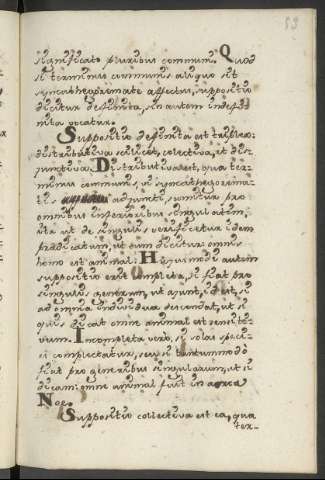 53
significato pluribus communi. Quod
si terminus communis aliquo sit
syncatheg​oremate affectus, suppositio
dicitur definita, sin autem indefi-
nita vocatur.
Suppositio definita est triplex:
distributiva scilicet, colectiva, et dis-
junctiva. Distributiva est, qua ter-
minus communis, vi syncathegorema-
tis adjuncti sumitur pro
omnibus inferioribus singulatim,
ita ut de singulis verificetur idem
praedicatum, ut cum dicitur: omnis
homo est animal. Hujusmodi autem
suppositio erit completa, si fiat pro
singulis generum, ut ajunt, id est, si
ad omnia individua descendat, ut si
quis dicat omne animal est sensiti-
vum. Incompleta vero, si solas speci-
es complectatur, seu si tantummodo
fiat pro generibus singularum, ut si
dicam: omne animal fuit in arca
Noe.
Suppositio colectiva est ea, qua
ter-